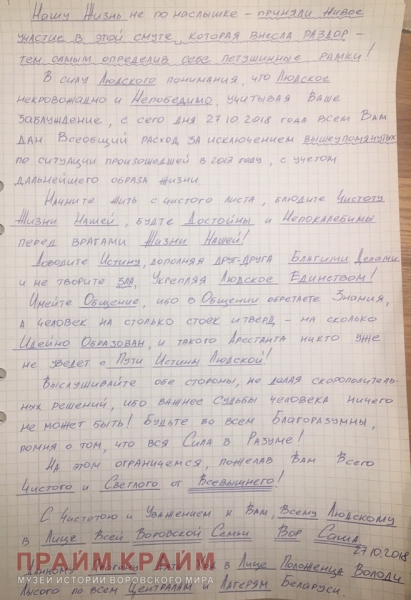 Нашу Жизнь не по наслышке – приняли живое
участие в этой смуте, которая внесла раздор –
тем самым определив себе петушинные рамки!
В силу Людского понимания, что Людское
некровожадно и Непобедимо, учитывая Ваше
заблуждение, с сего дня 27.10.2018 года всем Вам
дан Всеобщий расход, за исключением вышеупомянутых
по ситуации произошедшей в 2013 году, с учетом
дальнейшего образа жизни.
Начните жить с чистого листа, блюдите Чистоту
Жизни Нашей, будте Достойны и Непоколебимы
перед врагами Жизни Нашей!
Доводите Истину, дополняя друг-друга Благими Делами
и не творите зла, Укрепляя Людское Единством!
Имейте Общение, ибо в Общении обретаете Знания,
а человек на столько стоек и тверд – на сколько
Идейно Образован, и такого Арестанта никто уже
не уведет с Пути Истины Людской!
Выслушивайте обе стороны, не делая скорополитель-
ных решений, ибо важнее судьбы человека ничего
не может быть! Будьте во всем Благоразумны,
помня о том, что вся Сила в Разуме!
На этом ограничемся, пожелав Вам Всего
Чистого и Светлого от Всевышнего!
С Чистотою и Уважением к Вам, Всему Людскому
в Лице Всей Воровской Семьи Вор Саша
27.10.2018
ПРАЙМ КРАЙМ
в Лице Положенца Володи
МУЗЕЙ ИСТОРИИ ВОРОВСКОГО МИРА
Лысого по всем Централам и Лагерям Беларуси.